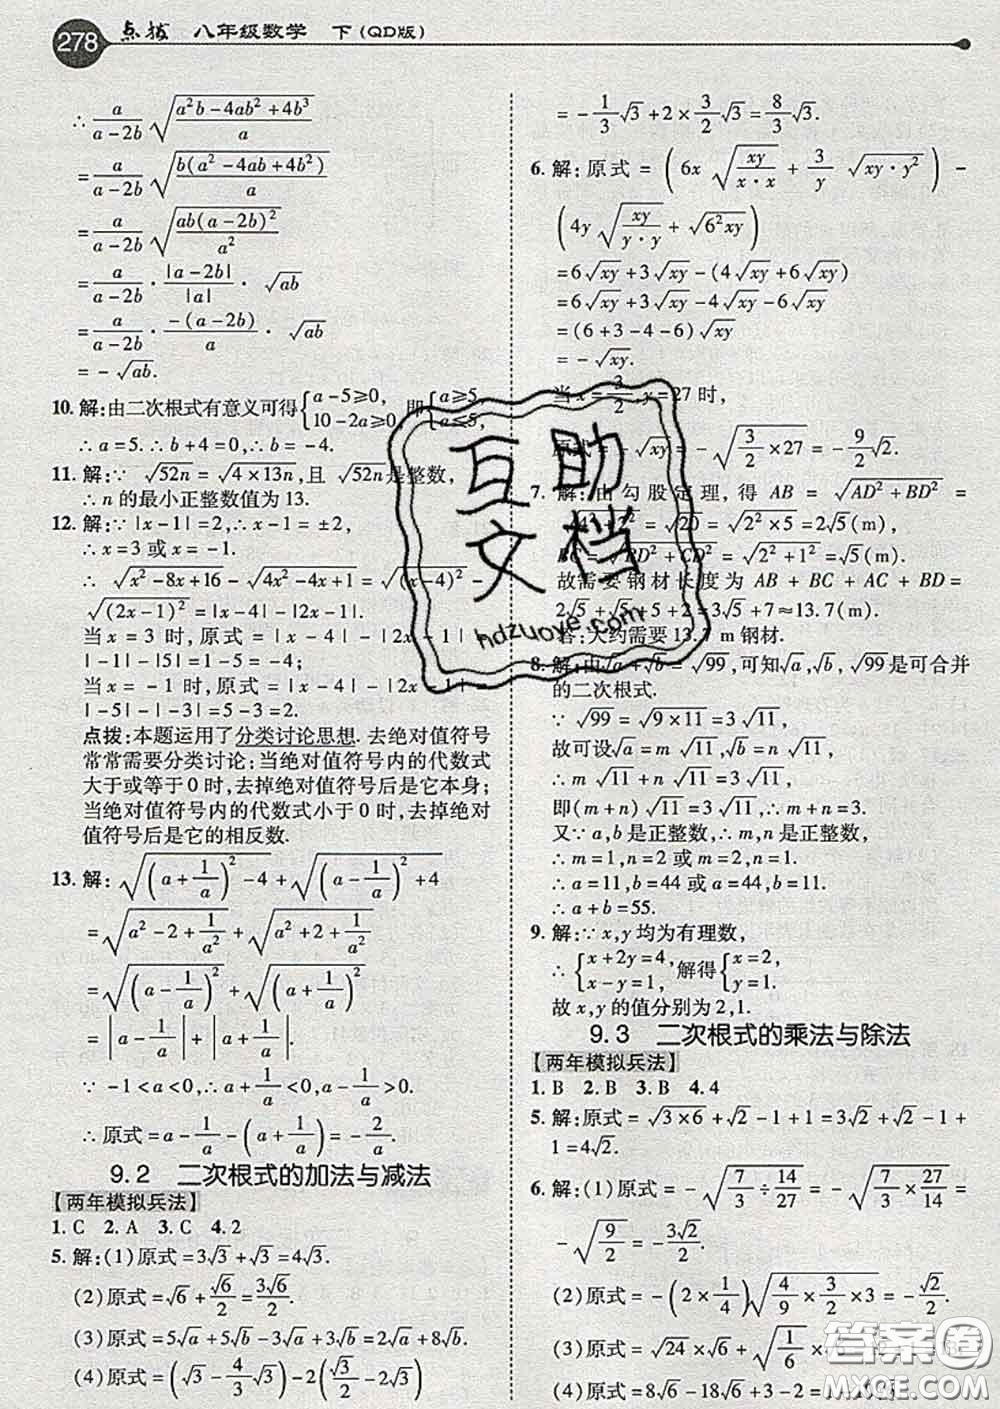 278 点拨 八年级数学 下(QD版)
∴ a/(a-2b) √((a²b-4ab²+4b³)/a)
= a/(a-2b) √(b(a²-4ab+4b²)/a)
= a/(a-2b) √(ab(a-2b)²/a²)
= a/(a-2b) · |a-2b|/|a| · √ab
= a/(a-2b) · -(a-2b)/a · √ab
= -√ab.
10. 解:由二次根式有意义可得{a-5≥0, 10-2a≥0, 即{a≥5, a≤5,
∴a=5.∴b+4=0,∴b=-4.
11. 解:∵ √52n = √4×13n,且 √52n是整数,
∴n的最小正整数值为13.
12. 解:∵|x-1|=2,∴x-1=±2,
∴x=3或x=-1.
∴ √(x²-8x+16) - √(4x²-4x+1) = √(x-4)² -
√(2x-1)² = |x-4|-|2x-1|.
当x=3时,原式=|x-4|-|2x-1|=
|-1|-|5|=1-5=-4;
当x=-1时,原式=|x-4|-|2x-1|=
|-5|-|-3|=5-3=2.
点拨:本题运用了分类讨论思想.去绝对值符号
常常需要分类讨论;当绝对值符号内的代数式
大于或等于0时,去掉绝对值符号后是它本身;
当绝对值符号内的代数式小于0时,去掉绝对
值符号后是它的相反数.
13. 解: √((a+1/a)²-4) + √((a-1/a)²+4)
= √(a²-2+1/a²) + √(a²+2+1/a²)
= √((a-1/a)²) + √((a+1/a)²)
= |a-1/a| + |a+1/a|.
∵-1<a<0,∴a+1/a<0,a-1/a>0,
∴原式=a-1/a-(a+1/a)=-2/a.
9.2 二次根式的加法与减法
【两年模拟兵法】
1.C 2.A 3.C 4.2
5. 解:(1)原式=3√3+√3=4√3.
(2)原式=√6+√6/2=3√6/2.
(3)原式=5√a+5√b-3√a+3√b=2√a+8√b.
(4)原式=(√3-4/3√3)-(√3/2-2√3)
=-1/3√3+2×3/2√3=8/3√3.
6. 解:原式=(6x√(xy/(x·x))+3/y√(xy·y²))-
(4y√(xy/(y·y))+√(6²xy))
=6√xy+3√xy-(4√xy+6√xy)
=6√xy+3√xy-4√xy-6√xy
=(6+3-4-6)√xy
=-√xy.
当x=3/2,y=27时,
原式=-√xy=-√(3/2×27)=-9/2√2.
7. 解:由勾股定理,得AB=√(AD²+BD²)=
√(4²+2²)=√20=√(2²×5)=2√5(m),
BC=√(BD²+CD²)=√(2²+1²)=√5(m).
故需要钢材长度为AB+BC+AC+BD=
2√5+√5+5+2=3√5+7≈13.7(m).
答:大约需要13.7 m钢材.
8. 解:由√a+√b=√99,可知√a,√b,√99是可合并
的二次根式.
∵√99=√(9×11)=3√11,
故可设√a=m√11,√b=n√11,
∴m√11+n√11=3√11,
即(m+n)√11=3√11,∴m+n=3.
又∵a,b是正整数,∴m,n是正整数,
∴m=1,n=2或m=2,n=1.
∴a=11,b=44或a=44,b=11,
∴a+b=55.
9. 解:∵x,y均为有理数,
∴{x+2y=4, x-y=1, 解得{x=2, y=1.
故x,y的值分别为2,1.
9.3 二次根式的乘法与除法
【两年模拟兵法】
1.B 2.B 3.B 4.4
5. 解:原式=√(3×6)+√2-1+1=3√2+√2-1
+1=4√2.
6. 解:(1)原式=-√(7/3÷14/27)=-√(7/3×27/14)=
-√(9/2)=-3√2/2.
(2)原式=-(2×1/4)√(4/9×3/2×3)=-√2/2.
(3)原式=√24×√6+√(1/6)×√6
(4)原式=8√6-18√6+3√6
互助文档
hdzuoye.com
答案圈
MXQE.COM